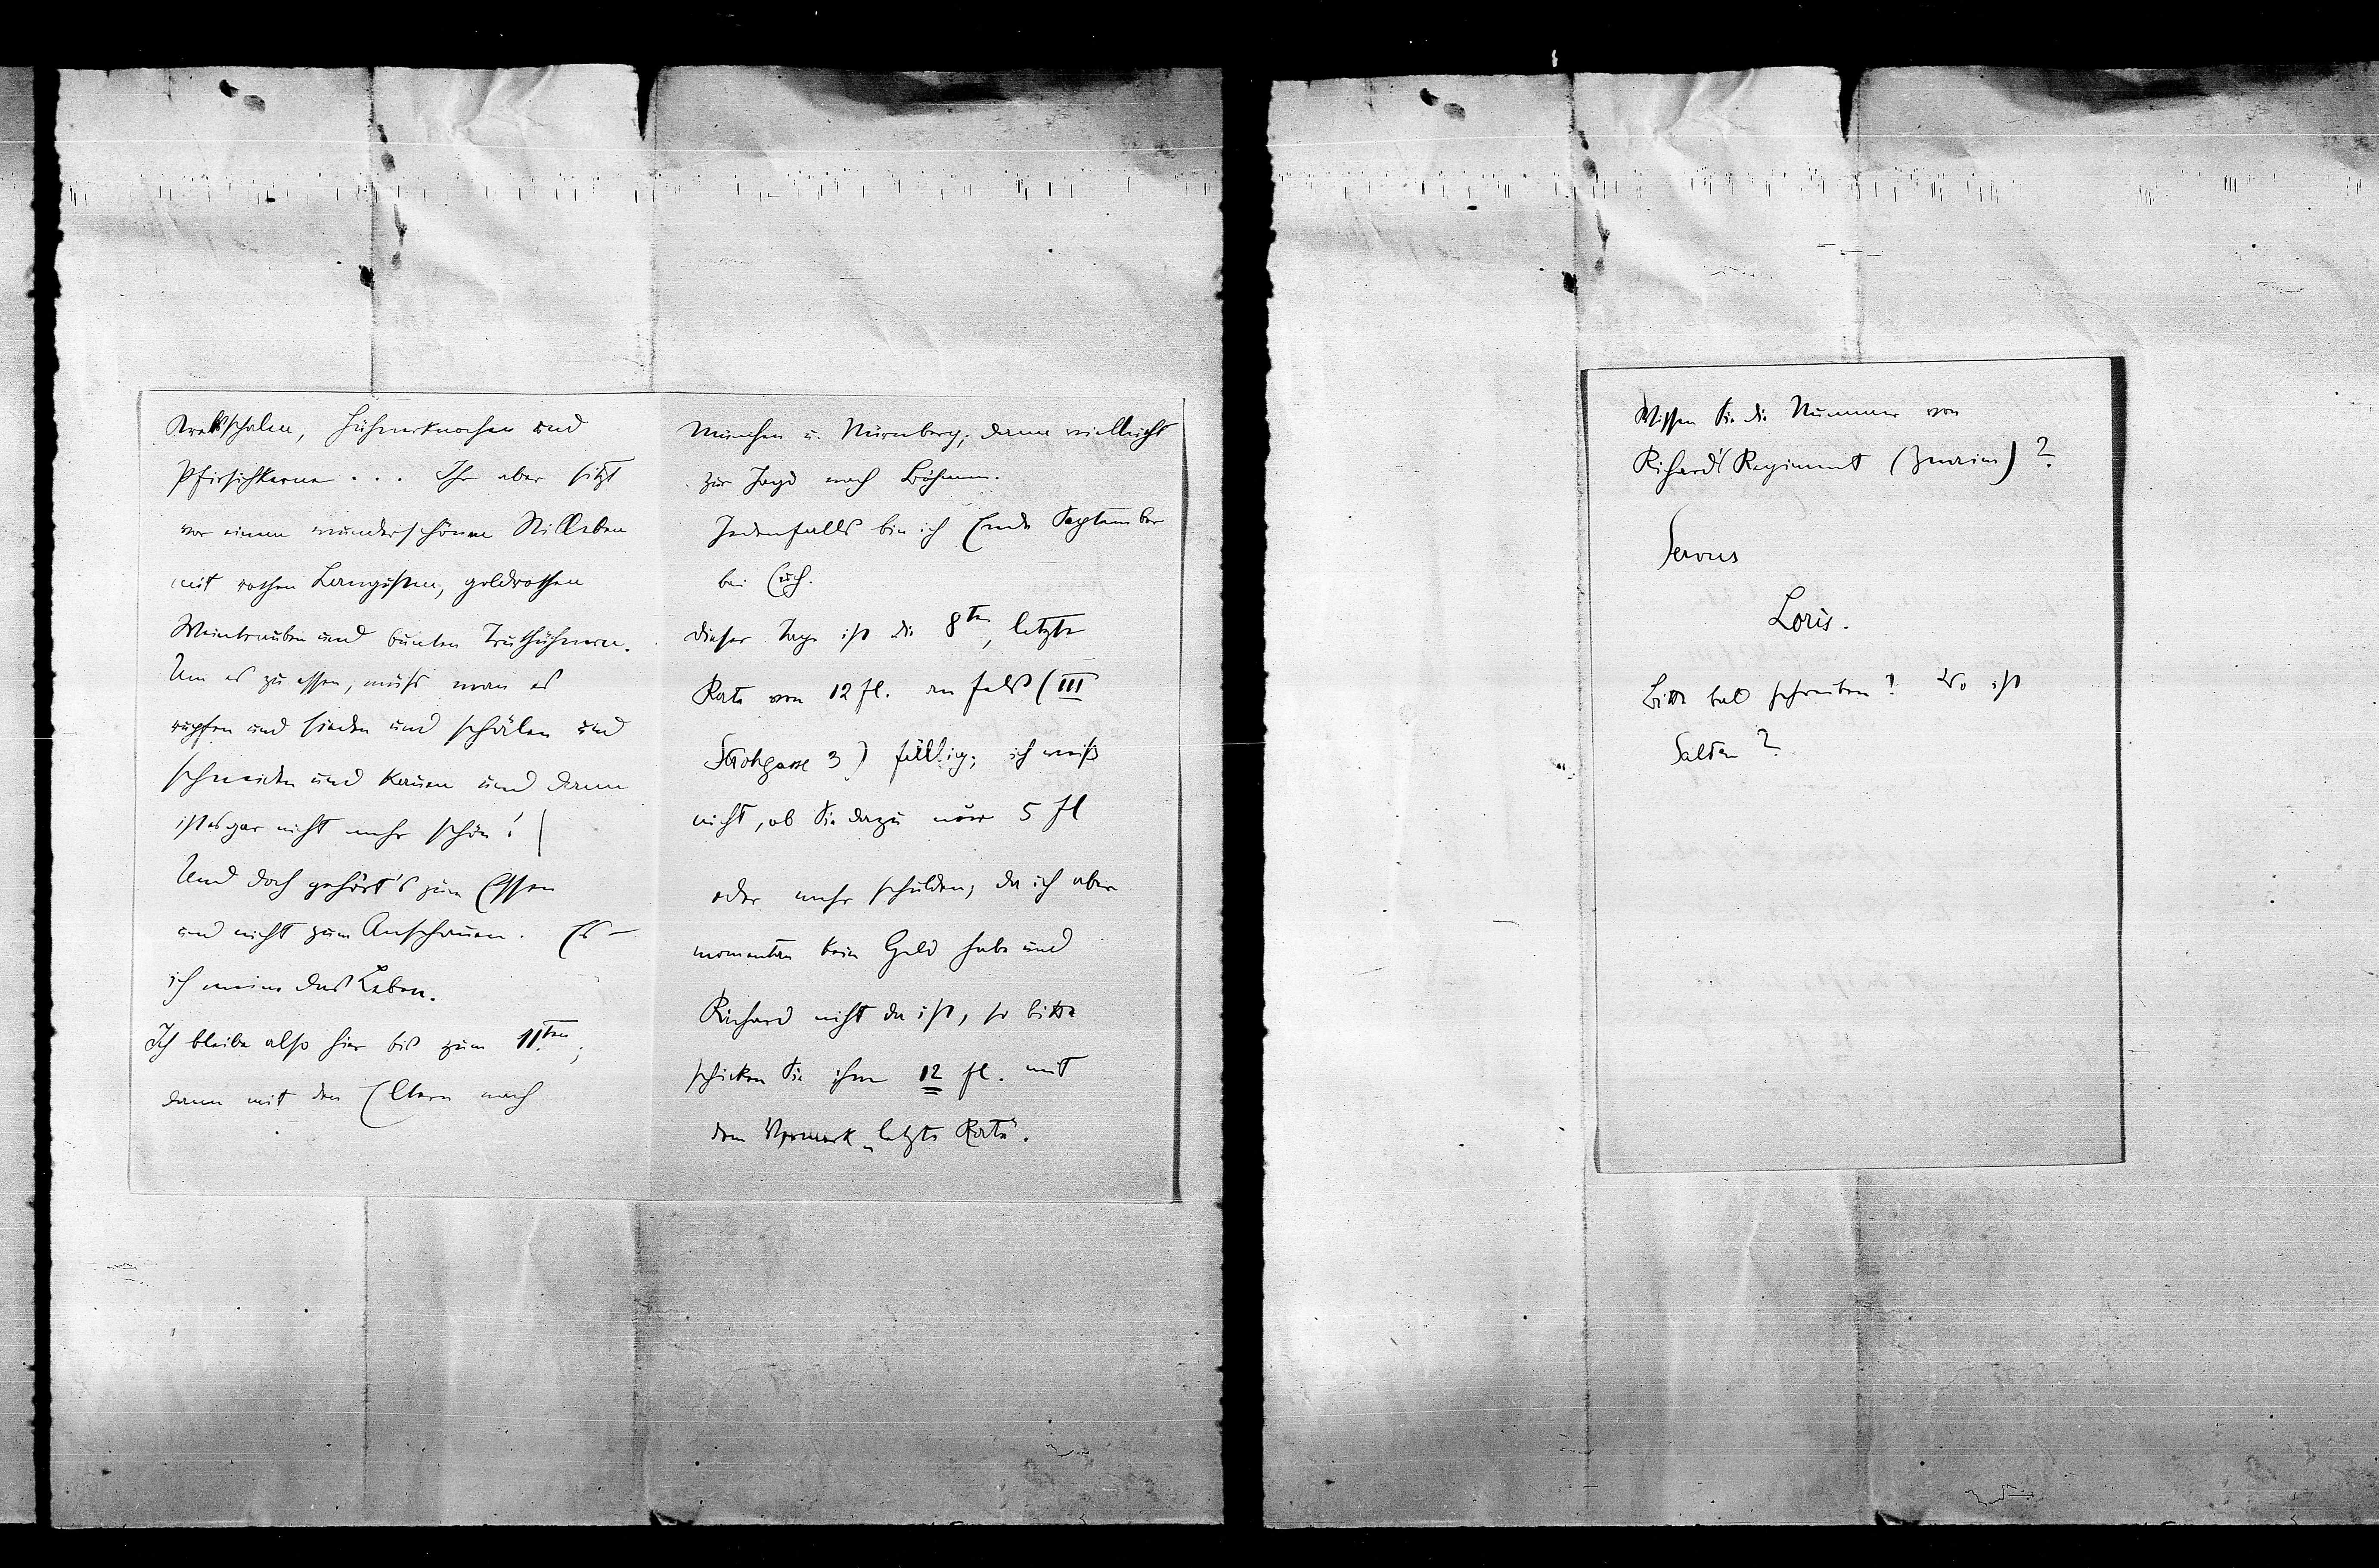 Krebsschalen, Hühnerknochen und
Pfirsichkerne ... Ihr aber sitzt
vor einem wunderschönen Stilleben
mit rothen Langusten, goldrothen
Weintrauben und bunten Truthühnern.
Um es zu essen, muß man es
rupfen und sieden und schälen und
schneiden und kauen und dann
ist es gar nicht mehr schön!
Und doch gehört's zum Essen
und nicht zum Anschauen. Es –
ich meine das Leben.
Ich bleibe also hier bis zum 11ten;
dann mit den Eltern nach
München u. Nürnberg; dann vielleicht
zur Jagd nach Böhmen.
Jedenfalls bin ich Ende September
bei Euch.
Dieser Tage ist die 8te, letzte
Rate von 12 fl. an Fels (III
Strohgasse 3) fällig; ich weiß
nicht, ob Sie dazu nur 5 fl
oder mehr schulden; da ich aber
momentan kein Geld habe und
Richard nicht da ist, so bitte
schicken Sie ihm 12 fl. mit
dem Vermerk „letzte Rate".
Wissen Sie die Nummer von
Richard's Regiment (Znaim)?
Servus
Loris.
Bitte bald schreiben! Wo ist
Salten?